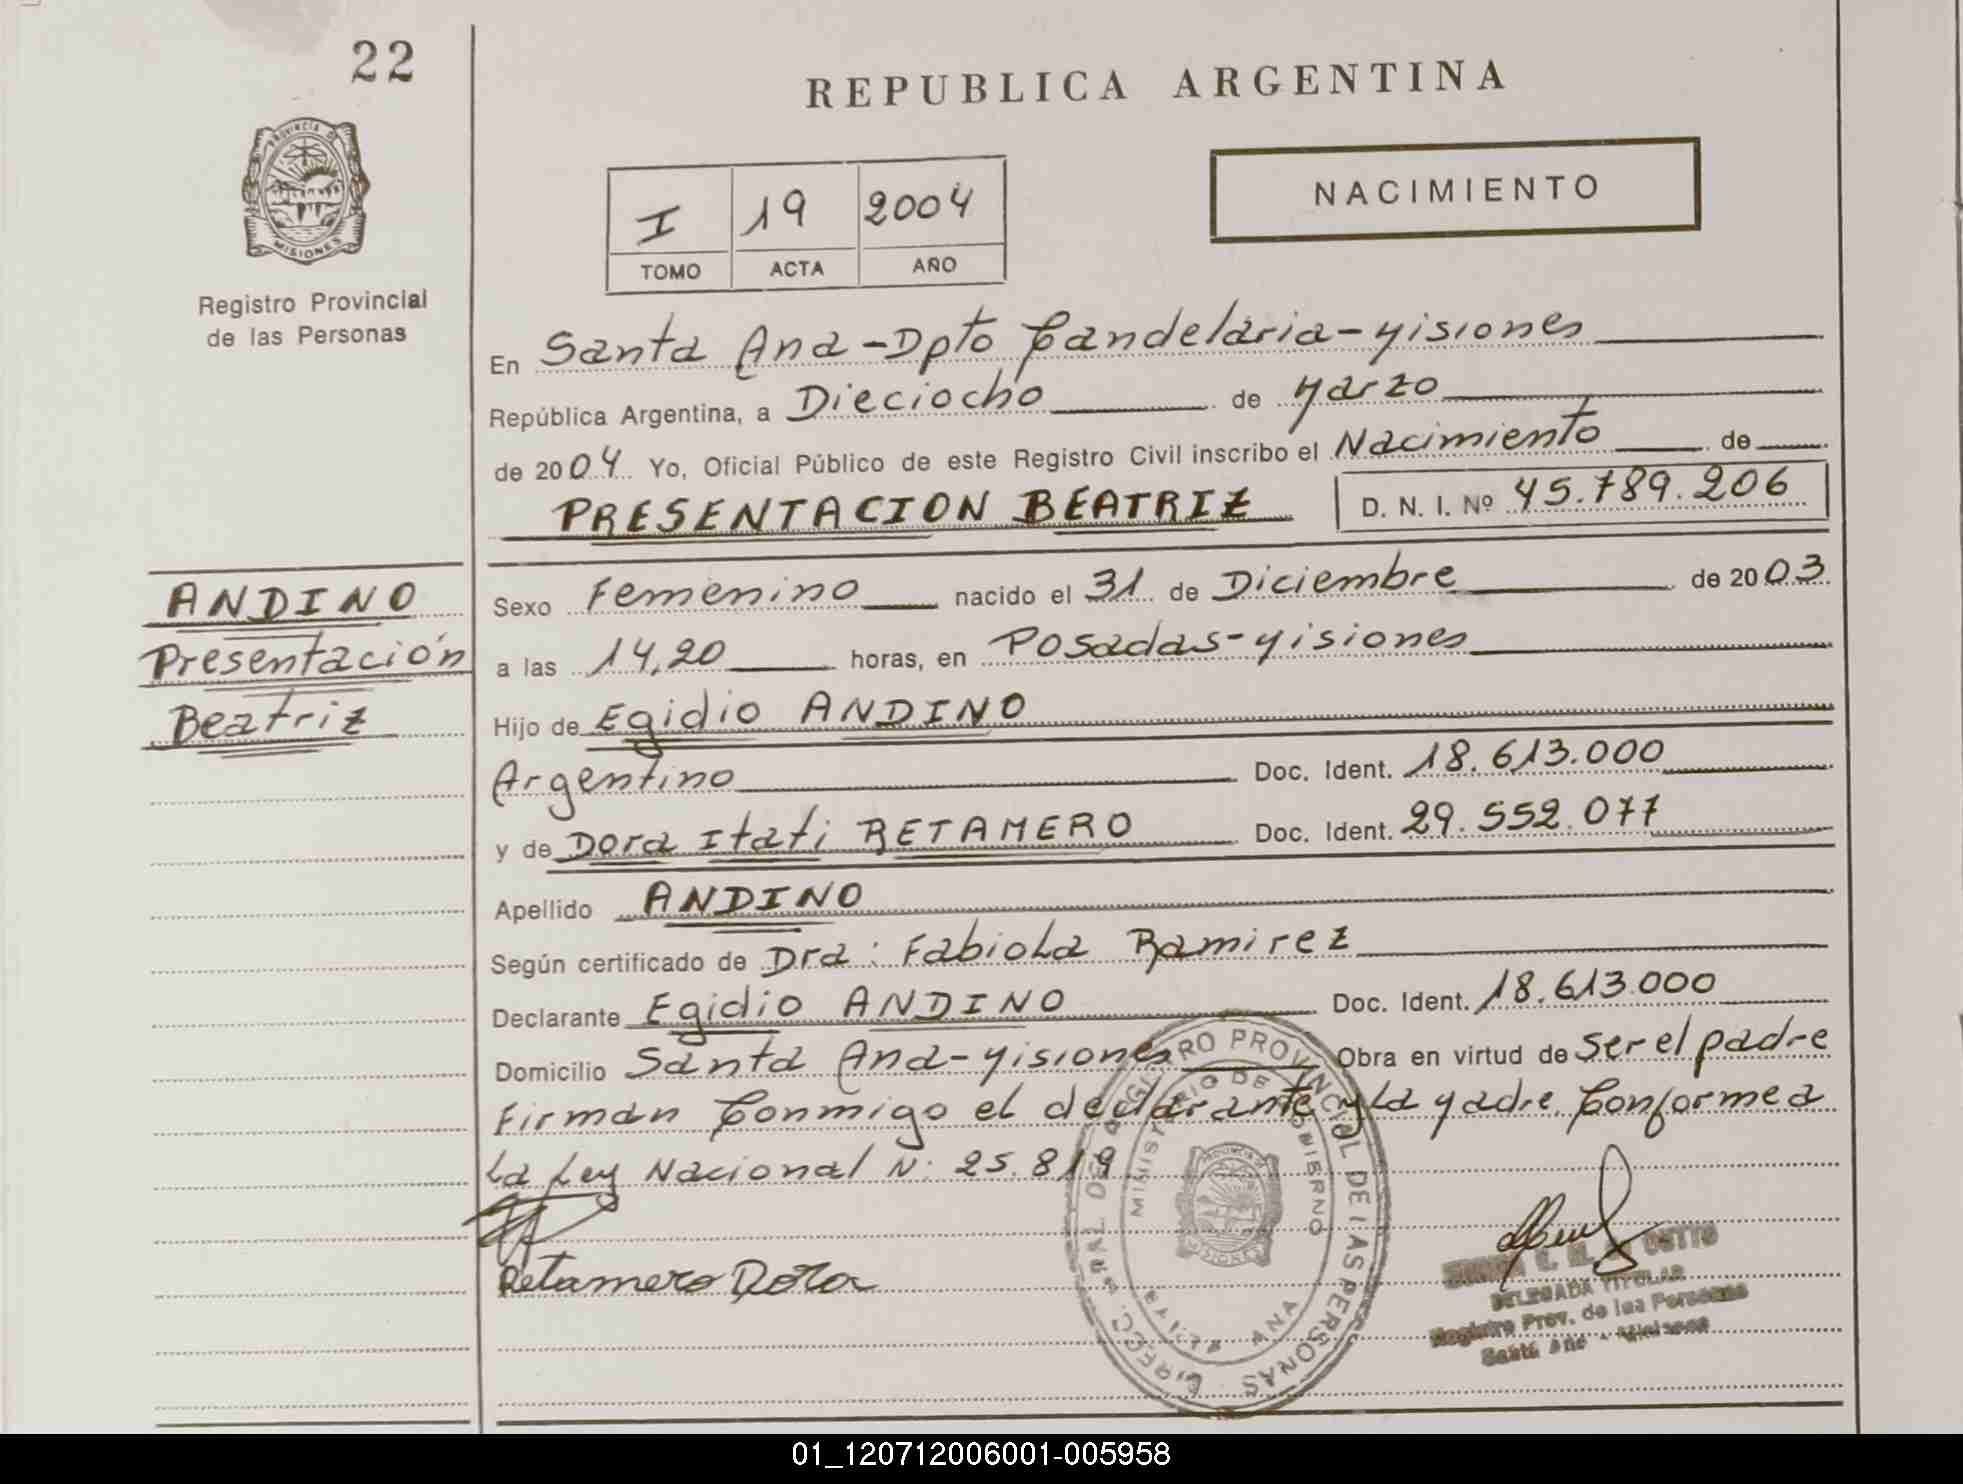 22
REPUBLICA ARGENTINA
PROVINCIA DE
MISIONES
Registro Provincial
de las Personas
I 19 2004
TOMO ACTA AÑO
NACIMIENTO
En Santa Ana-Dpto Candelaria-Misiones
República Argentina, a Dieciocho de Marzo
de 2004 Yo, Oficial Público de este Registro Civil inscribo el Nacimiento de
PRESENTACION BEATRIZ D. N. I. Nº 45.789.206
ANDINO
Presentación
Beatriz
Sexo Femenino nacido el 31 de Diciembre de 2003
a las 14,20 horas, en Posadas-Misiones
Hijo de Egidio ANDINO
Argentino Doc. Ident. 18.613.000
y de Dora Itati RETAMERO Doc. Ident. 29.552.077
Apellido ANDINO
Según certificado de Dra: Fabiola Ramirez
Declarante Egidio ANDINO Doc. Ident. 18.613.000
Domicilio Santa Ana-Misiones Obra en virtud de ser el padre
Firman Conmigo el declarante y La Madre. Conforme a
La Ley Nacional N: 25.819
Retamero Dora
REGISTRO PROVINCIAL DE LAS PERSONAS
MINISTERIO DE GOBIERNO
SANTA ANA
MISIONES
DELEGADA TITULAR
Registro Prov. de las Personas
Santa Ana - Misiones
01_120712006001-005958